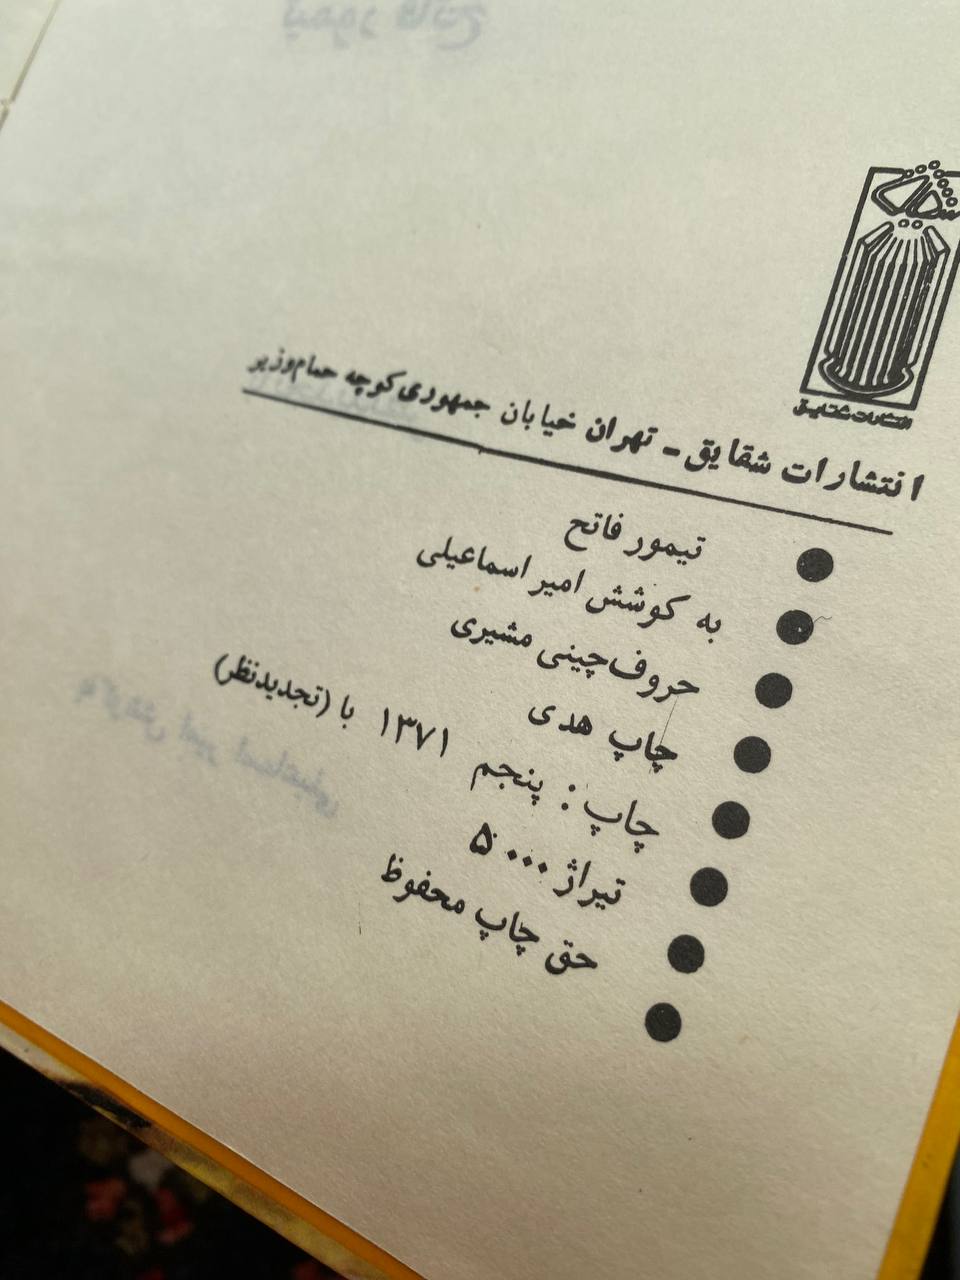 انتشارات شقایق
انتشارات شقایق - تهران خیابان جمهوری کوچه حمام‌وزیر
تیمور فاتح
به کوشش امیر اسماعیلی
حروف‌چینی مشیری
چاپ هدی
چاپ : پنجم ۱۳۷۱ با (تجدیدنظر)
تیراژ ۵۰۰۰
حق چاپ محفوظ